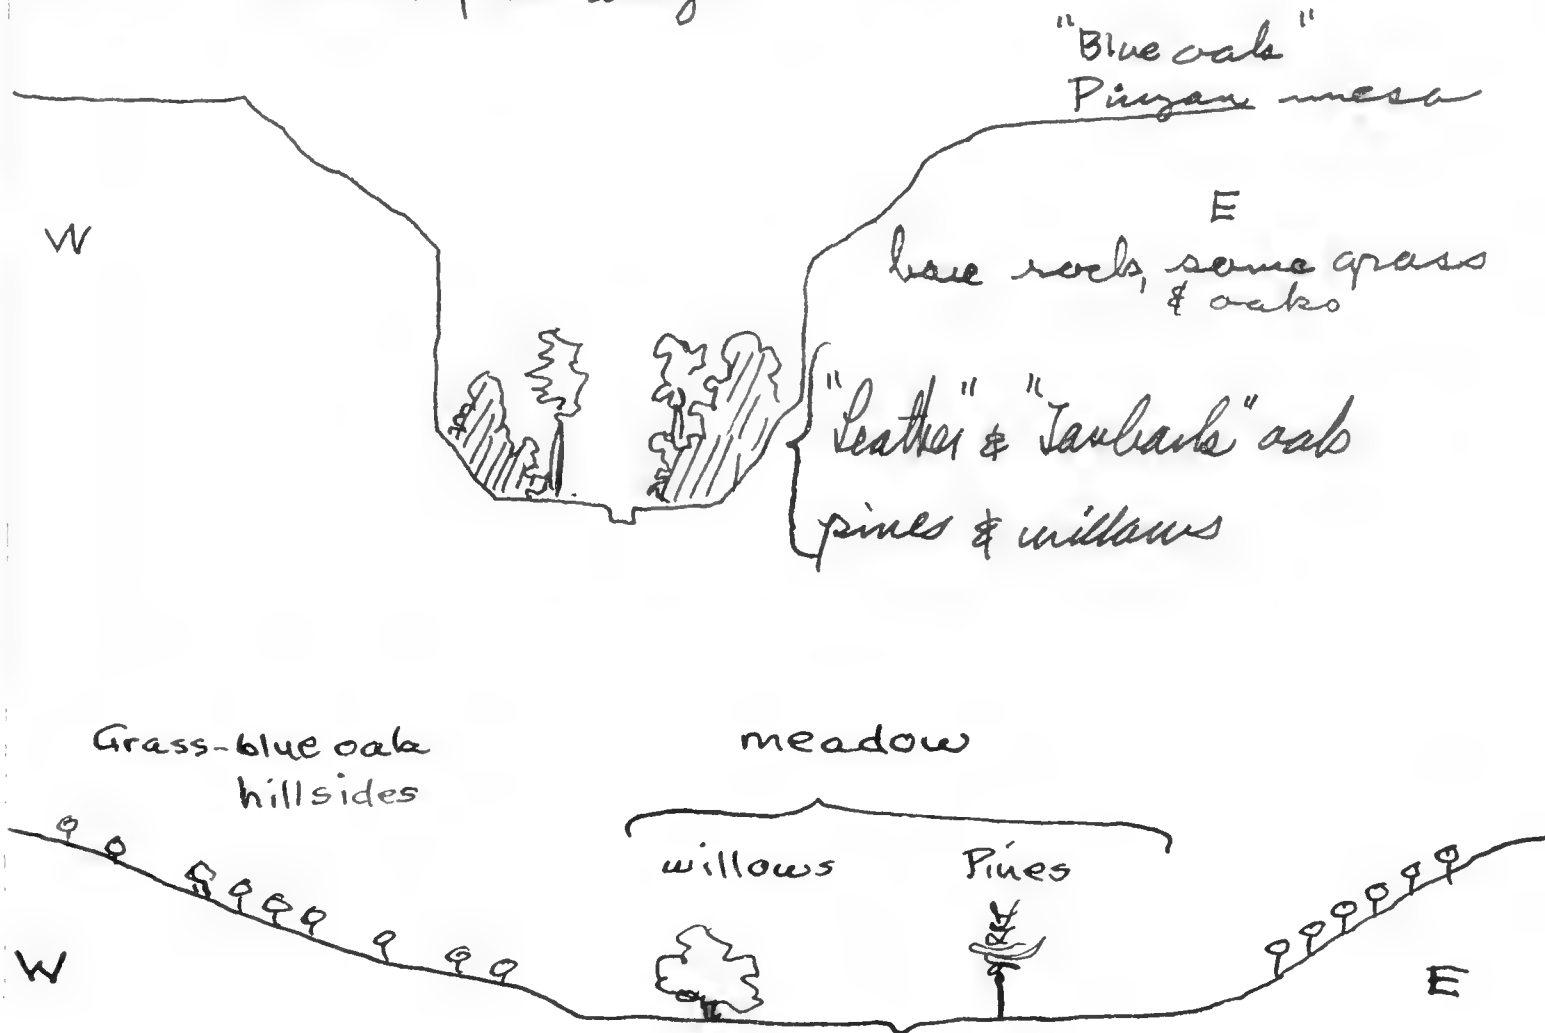 "Blue oak"
Pinyan mesa
W
E
bare rock, some grass
& oaks
"Leather" & "Tanbark" oak
pines & willows
Grass-blue oak
hillsides
meadow
willows
Pines
W
E